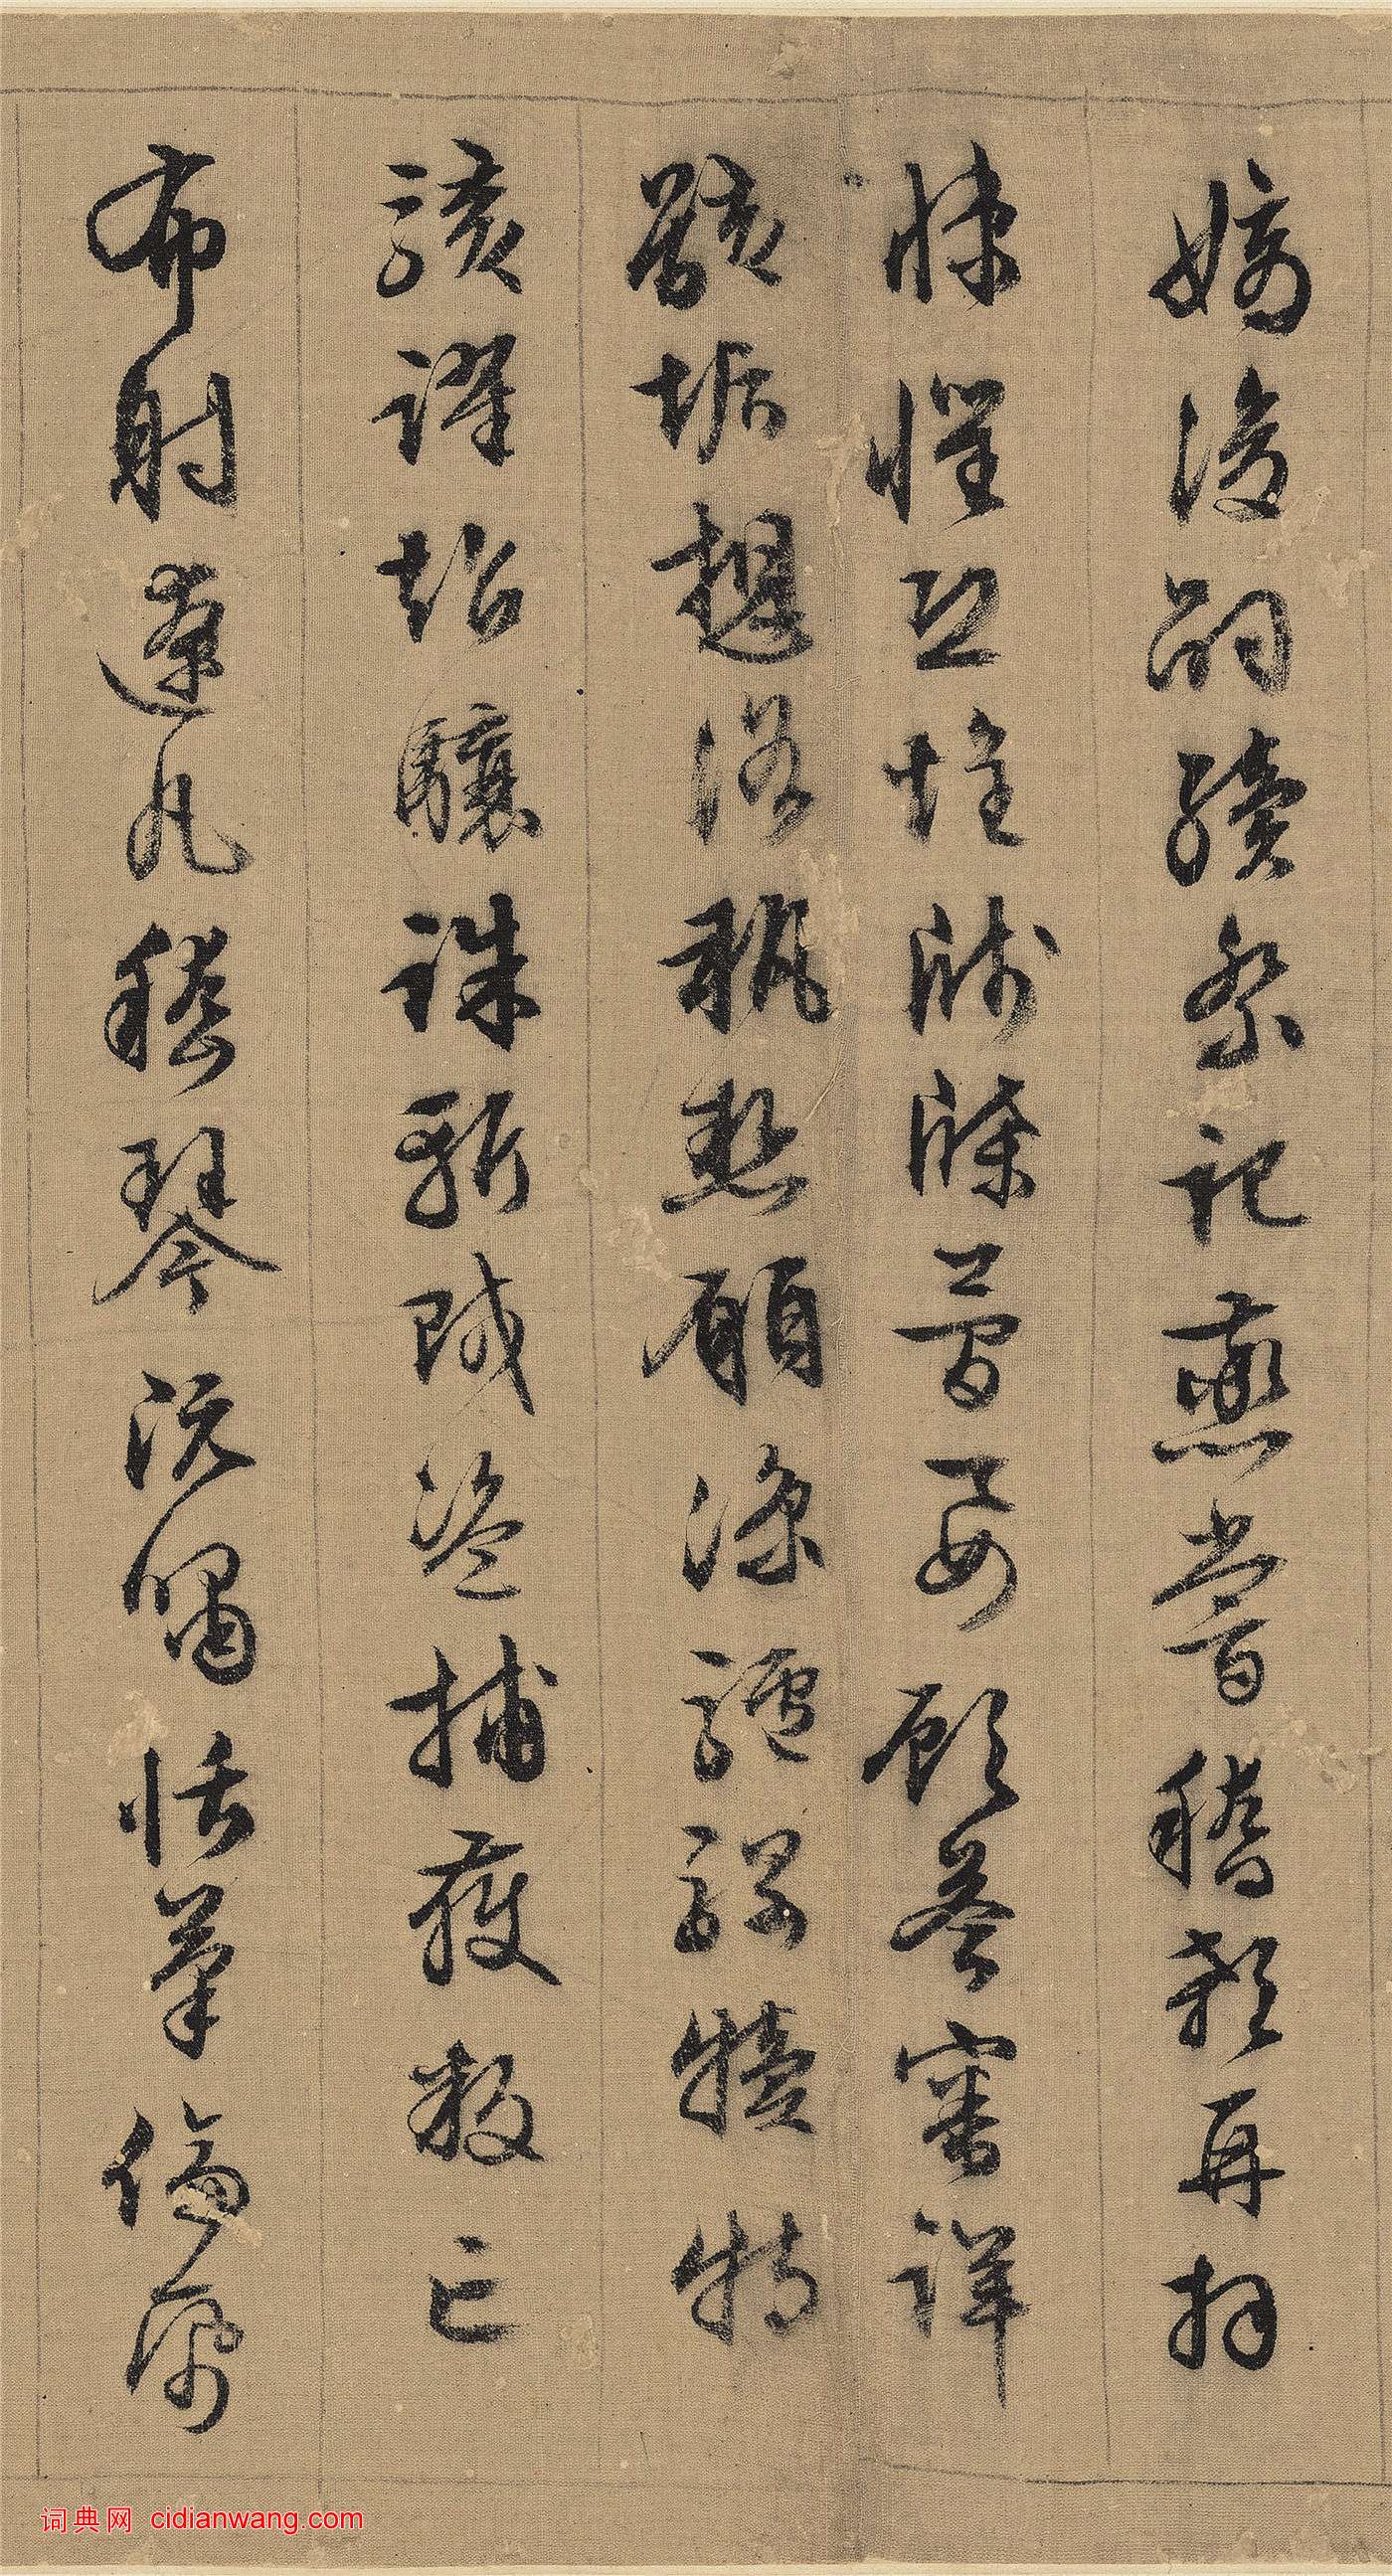 嫡後嗣續祭祀蒸嘗稽顙再拜
悚懼恐惶牋牒簡要顧答審詳
骸垢想浴執熱願涼驢騾犢特
駭躍超驤誅斬賊盜捕獲叛亡
布射遼丸嵇琴阮嘯恬筆倫紙
词典网 cidianwang.com